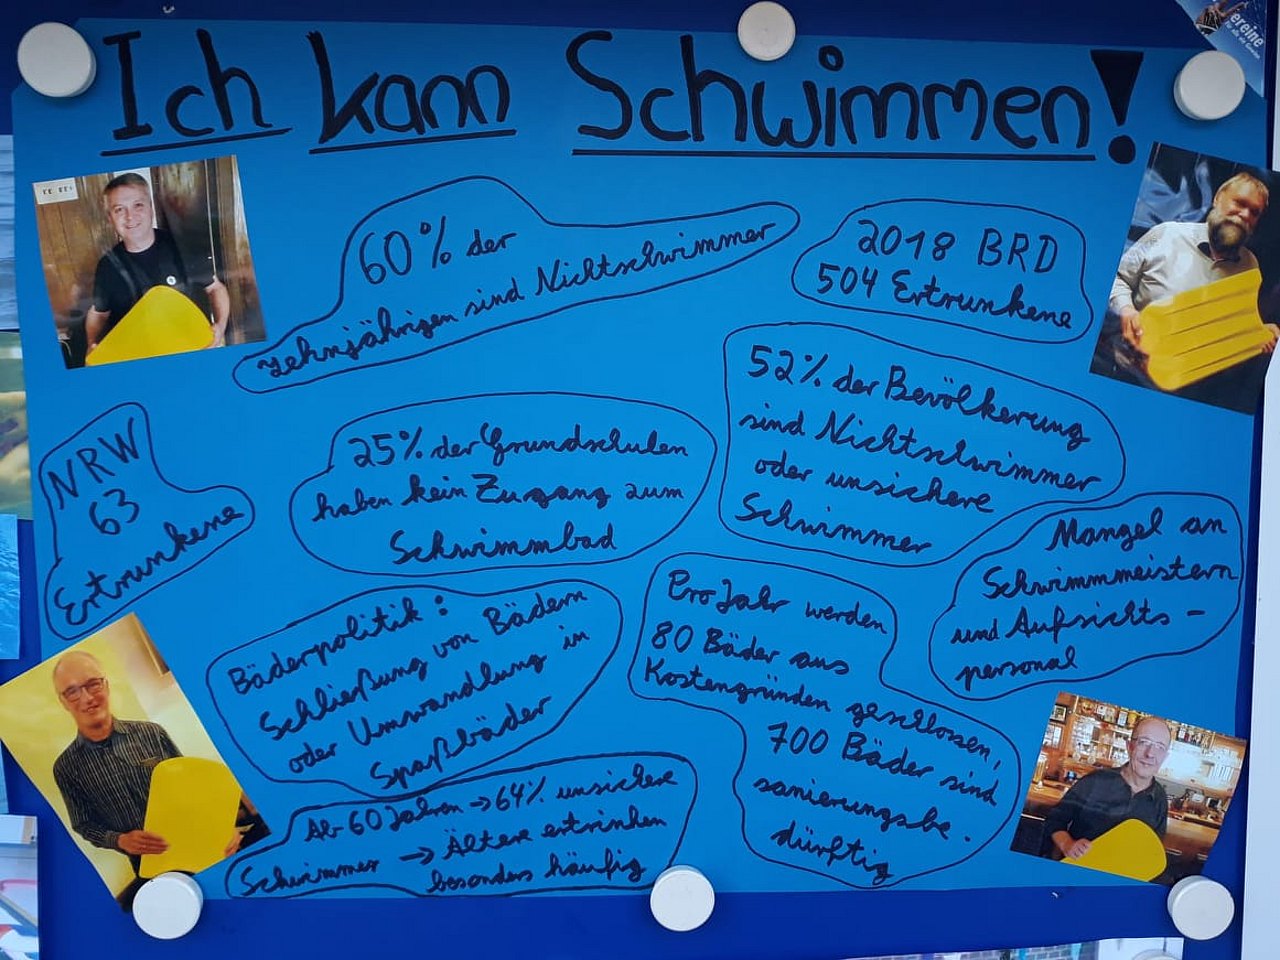 Ich kann Schwimmen!
60% der
zehnjährigen sind Nichtschwimmer
2018 BRD
504 Ertrunkene
52% der Bevölkerung
sind Nichtschwimmer
oder unsichere
Schwimmer
NRW
63
Ertrunkene
25% der Grundschulen
haben kein Zugang zum
Schwimmbad
Mangel an
Schwimmmeistern
und Aufsichts-
personal
Bäderpolitik:
Schließung von Bädern
oder Umwandlung in
Spaßbäder
Pro Jahr werden
80 Bäder aus
Kostengründen geschlossen,
700 Bäder sind
sanierungsbe-
dürftig
Ab 60 Jahren → 64% unsichere
Schwimmer → Ältere ertrinken
besonders häufig